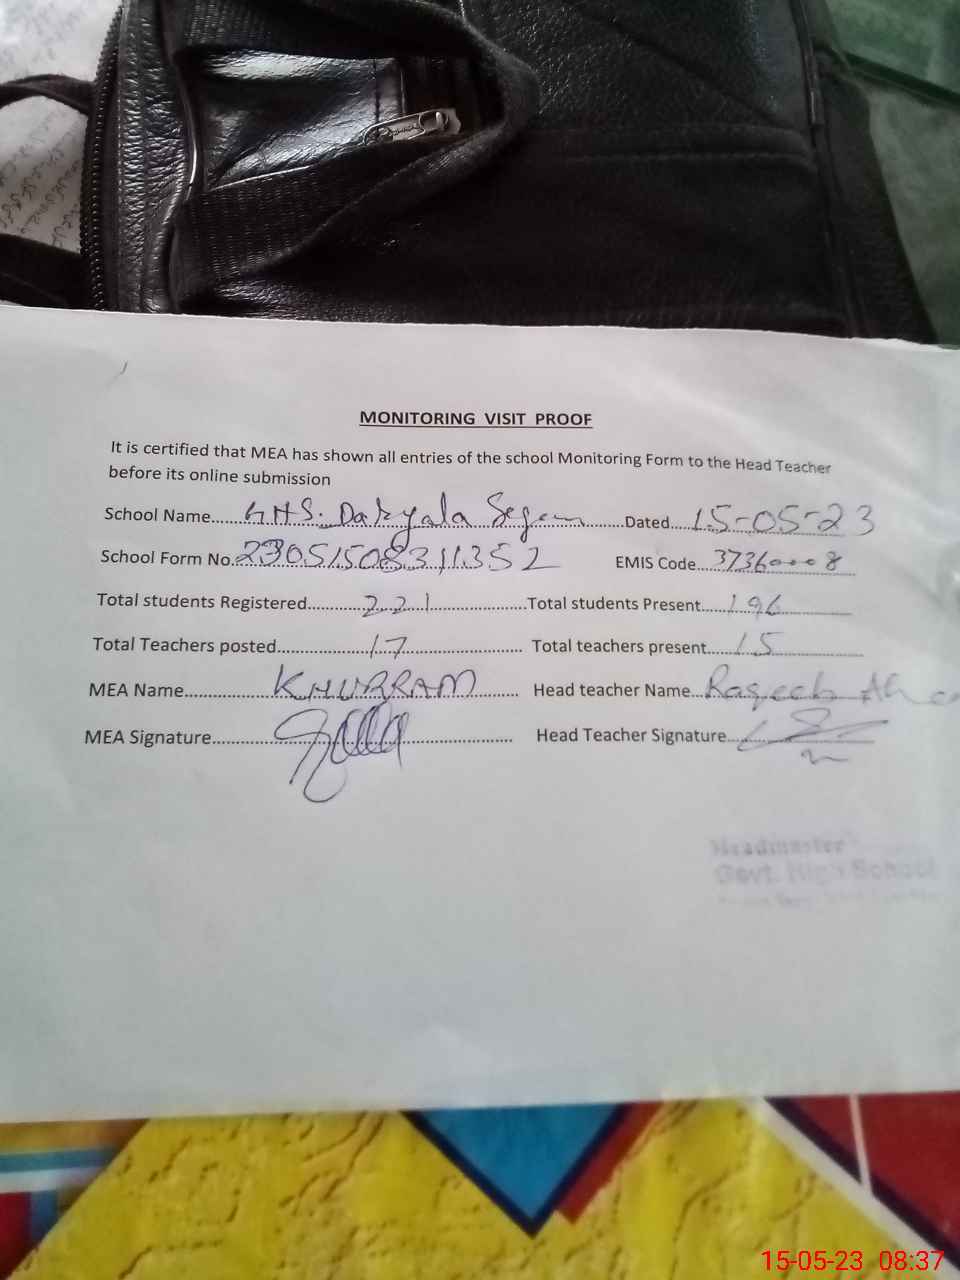 MONITORING VISIT PROOF
It is certified that MEA has shown all entries of the school Monitoring Form to the Head Teacher
before its online submission
School Name......GHS. Daryala Segan......Dated...15-05-23
School Form No.23051508311352 EMIS Code...37360008
Total students Registered............221............Total students Present......196
Total Teachers posted............17............ Total teachers present......15
MEA Name............KHURRAM............ Head teacher Name...Raqeeb Ah
MEA Signature.................................... Head Teacher Signature...
Headmaster
Govt. High School
15-05-23 08:37